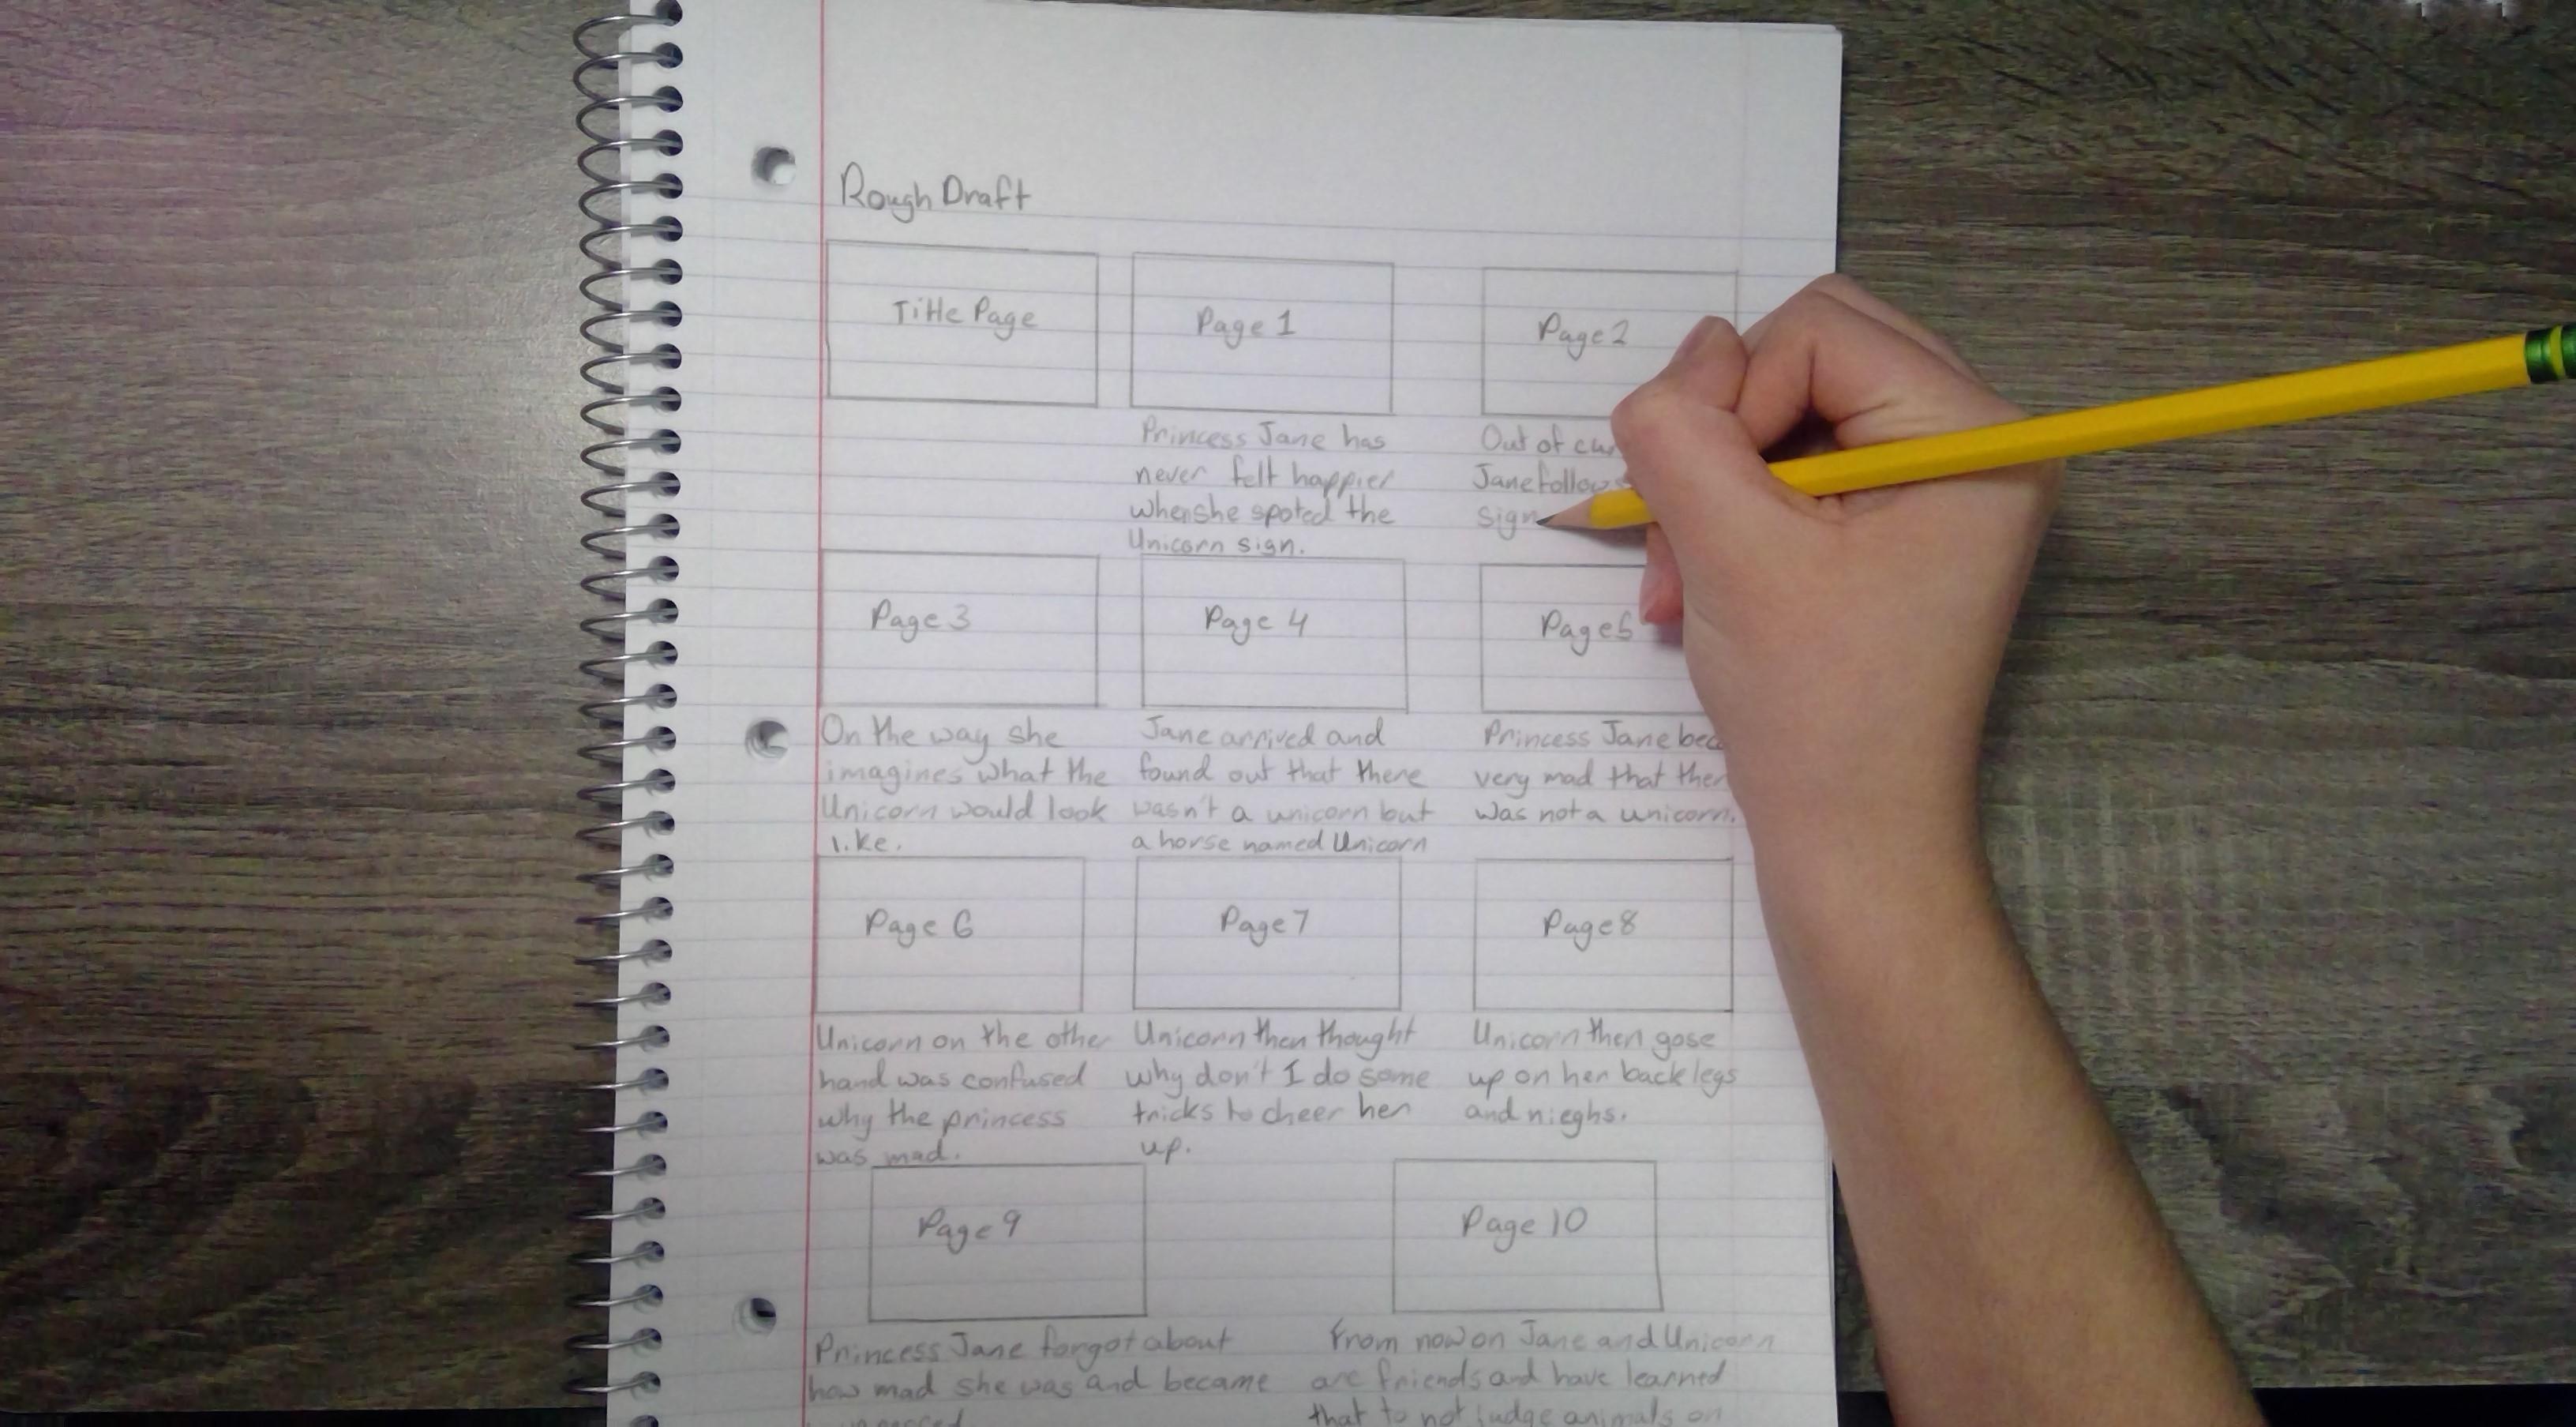 Rough Draft
Title Page
Page 1
Page 2
Princess Jane has
never felt happier
when she spoted the
Unicorn sign.
Out of
Jane follows
sign
Page 3
Page 4
Page 5
On the way she
imagines what the
Unicorn would look
like.
Jane arrived and
found out that there
wasn't a unicorn but
a horse named Unicorn
Princess Jane
very mad that
was not a unicorn.
Page 6
Page 7
Page 8
Unicorn on the other
hand was confused
why the princess
was mad.
Unicorn then thought
why don't I do some
tricks to cheer her
up.
Unicorn then gose
up on her back legs
and nieghs.
Page 9
Page 10
Princess Jane forgot about
how mad she was and became
From now on Jane and Unicorn
are friends and have learned
that to not judge animals on